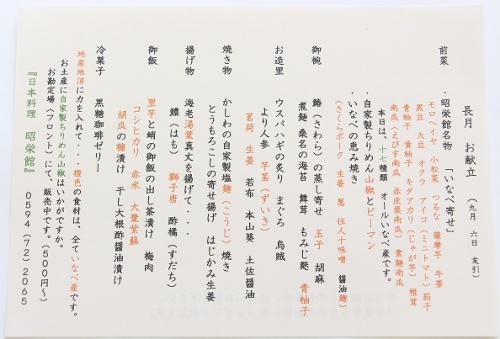 長月　お献立　（九月　六日　友引）
前菜　・昭栄館名物　「いなべ寄せ」
モロヘイヤ　小松菜　つるな　薩摩芋　牛蒡
黒豆　大豆　オクラ　アイコ（ミニトマト）茄子
青柚子　黄柚子　キタアカリ（じゃが芋）　椎茸
南瓜（えびす南瓜　赤皮栗南瓜）　素麺南瓜）
本日は、十七種類　オールいなべ産です。
・自家製ちりめん山椒とピーマン
・いなべの恵み焼き　醤油麹）
（さくらポーク　生姜　葱　住人十味噌
御椀　鰆（さわら）の蒸し寄せ　玉子　胡麻
煮麺　桑名の海苔　舞茸　もみじ麩　青柚子
お造里　ウスバハギの炙り　まぐろ　烏賊
より人参　芋茎（ずいき）
茗荷　生姜　若布　本山葵　土佐醤油
焼き物　かしわの自家製塩麹（こうじ）焼き
とうもろこしの寄せ揚げ　はじかみ生姜
揚げ物　海老湯葉真丈を揚げて・・・
鱧（はも）　獅子唐　酢橘（すだち）
御飯　里芋と蛸の御飯の出し茶漬け　梅肉
コシヒカリ　赤米　大葉紫蘇
胡瓜の糠漬け　干し大根酢醤油漬け
冷菓子　黒糖珈琲ゼリー
地産地消に力を入れて・・・橙色の食材は、全ていなべ産です。
お土産に自家製ちりめん山椒はいかがですか。
お勘定場（フロント）にて、販売中です。（５００円〜）
『日本料理　昭栄館』　０５９４（７２）２０６５